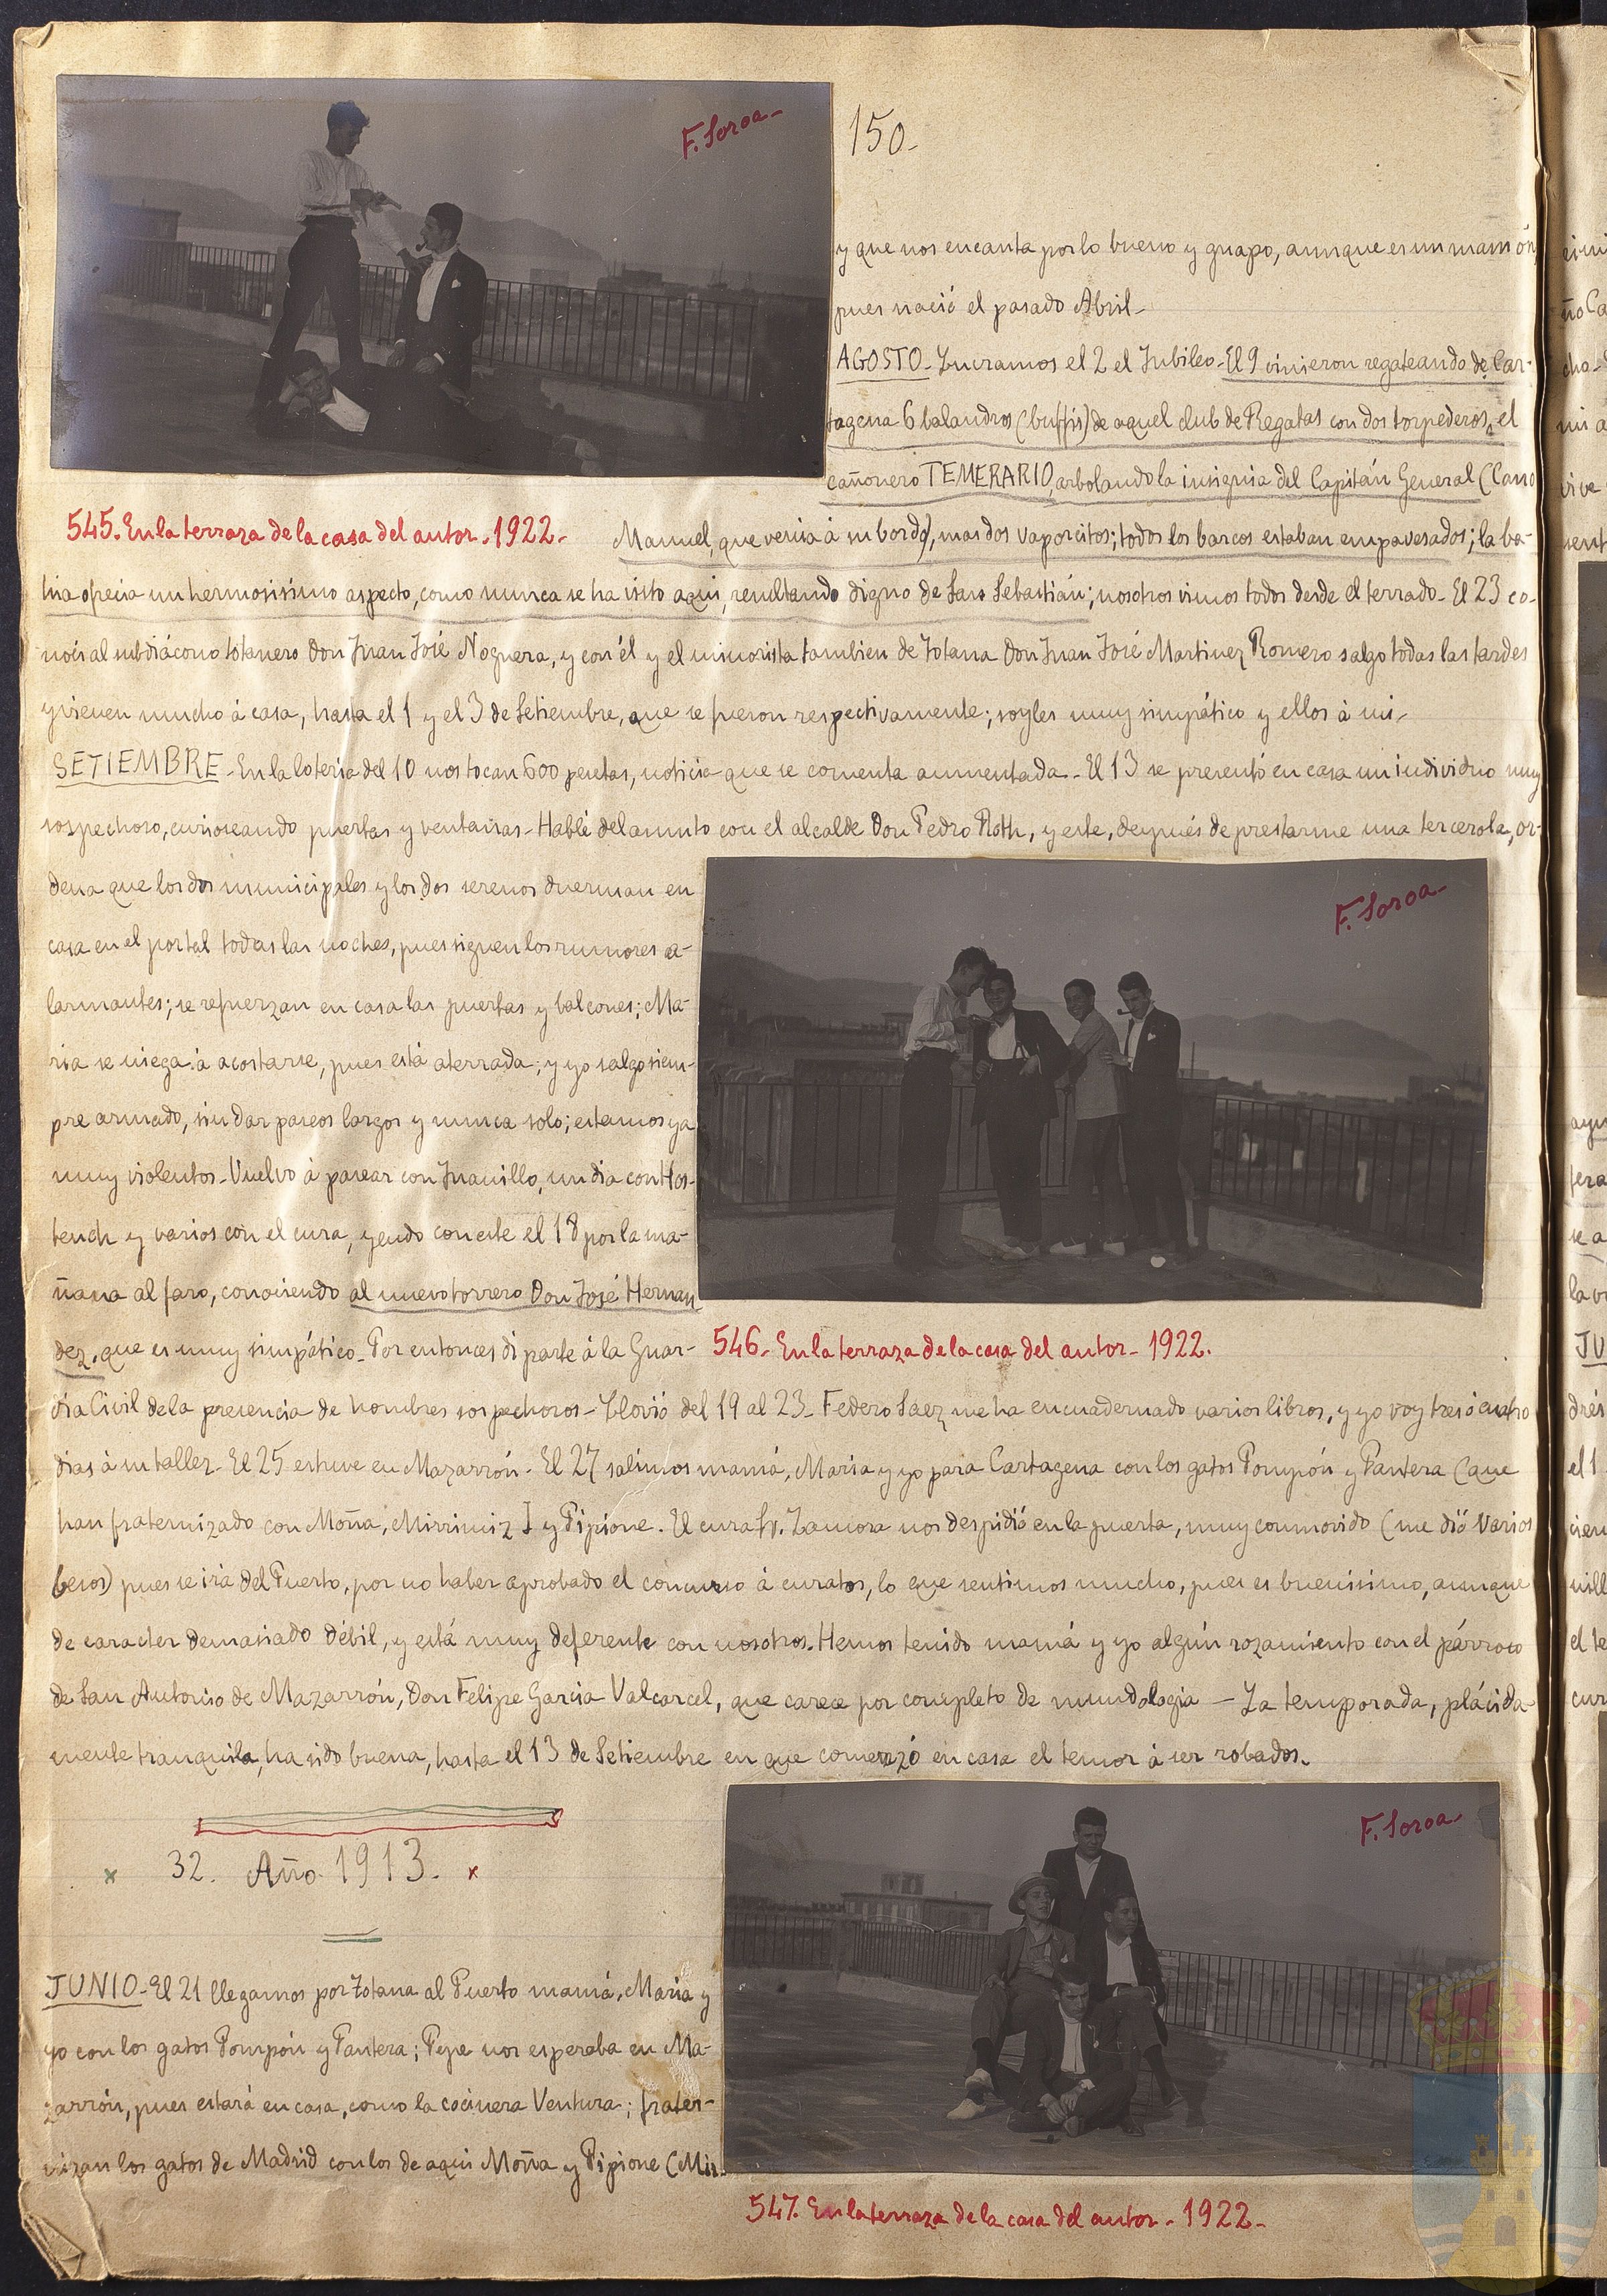 F. Soroa-
150-
y que nos encanta por lo bueno y guapo, aunque es un mamón,
pues nació el pasado Abril-
AGOSTO- Lucramos el 2 el Jubileo- El 9 vinieron regateando de Car-
tagena 6 balandros de aquel club de Regatas con dos torpederos, el
cañonero TEMERARIO, arbolando la insignia del Capitán General (Cano
545. En la terraza de la casa del autor. 1922-
Manuel, que venía á su bordo), mas dos vaporcitos; todos los barcos estaban empavesados; la ba-
hia ofrecia un hermosisimo aspecto, como nunca se ha visto aqui, resultando digno de San Sebastián; nosotros vimos todo desde el terrado- El 23 co-
nocí al subdiácono totanero Don Juan José Noguera, y con él y el minorista tambien de Totana Don Juan José Martinez Romero salgo todas las tardes
y vienen mucho á casa, hasta el 1 y el 3 de Setiembre, que se fueron respectivamente; soyles muy simpático y ellos á mi-
SETIEMBRE- En la loteria del 10 nos tocan 600 pesetas, noticia que se comenta aumentada- El 13 se presentó en casa un individuo muy
sospechoso, curioseando puertas y ventanas- Hablé del asunto con el alcalde Don Pedro Roth, y este, después de prestarme una tercerola, or-
dena que los dos municipales y los dos serenos duerman en
casa en el portal todas las noches, pues siguen los rumores a-
larmantes; se refuerzan en casa las puertas y balcones; Ma-
ria se niega á acostarse, pues está aterrada; y yo salgo siem-
pre armado, sin dar paseos largos y nunca solo; estamos ya
muy violentos- Vuelvo á pasear con Juanillo, un dia con Hos-
tench y varios con el cura, yendo con este el 18 por la ma-
ñana al faro, conociendo al nuevo torrero Don José Hernan
dez, que es muy simpático- Por entonces di parte á la Guar-
F. Soroa-
546- En la terraza de la casa del autor- 1922.
dia Civil de la presencia de hombres sospechosos- Llovió del 19 al 23- Federo Saez me ha encuadernado varios libros, y yo voy tres ó cuatro
dias á su taller- El 25 estuve en Mazarrón- El 27 salimos mamá, Maria y yo para Cartagena con los gatos Pompón y Pantera (que
han fraternizado con Moña, Mirrimiz I y Pipione. El cura Sr. Zamora nos despidió en la puerta, muy conmovido (me dió varios
besos) pues se irá del Puerto, por no haber aprobado el concurso á curatos, lo que sentimos mucho, pues es buenisimo, aunque
de caracter demasiado débil, y está muy deferente con nosotros. Hemos tenido mamá y yo algún rozamiento con el párroco
de San Antonio de Mazarrón, Don Felipe Garcia Valcarcel, que carece por completo de mundologia - La temporada, plácida-
mente tranquila, ha sido buena, hasta el 13 de Setiembre en que comenzó en casa el temor á ser robados.
32. Año 1913.
JUNIO- El 21 llegamos por Totana al Puerto mamá, Maria y
yo con los gatos Pompón y Pantera; Pepe nos esperaba en Ma-
zarrón, pues estará en casa, como la cocinera Ventura; frater-
nizan los gatos de Madrid con los de aqui Moña y Pipione (Mir-
F. Soroa-
547. En la terraza de la casa del autor- 1922-